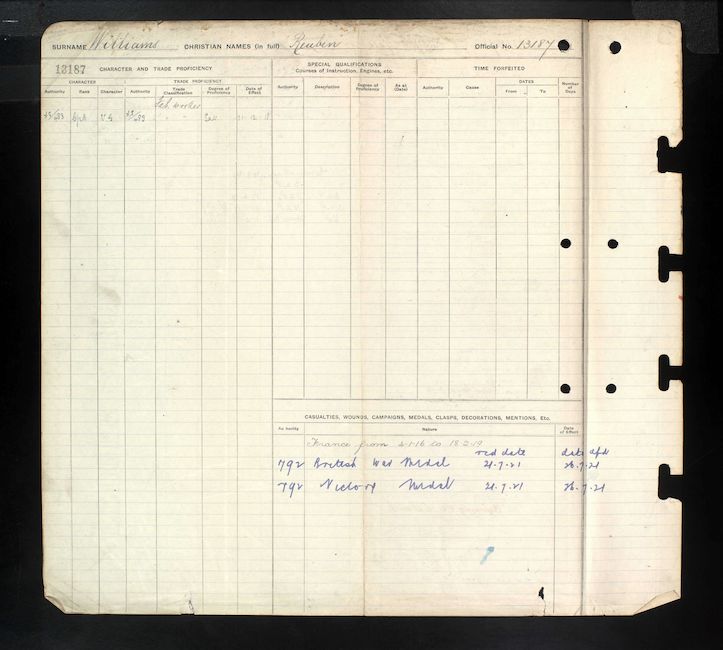 SURNAME Williams CHRISTIAN NAMES (in full) Reuben Official No. 13187
13187 CHARACTER AND TRADE PROFICIENCY
SPECIAL QUALIFICATIONS
Courses of Instruction, Engines, etc.
TIME FORFEITED
CHARACTER TRADE PROFICIENCY
Authority Rank Character Authority Trade Classification Degree of Proficiency Date of Effect
Authority Description Degree of Proficiency As at (Date)
Authority Cause DATES From To Number of Days
Fab. worker
V.G. " "
CASUALTIES, WOUNDS, CAMPAIGNS, MEDALS, CLASPS, DECORATIONS, MENTIONS, Etc.
Authority Nature Date of Effect
France from 2-1-16 to 18-2-19
rcd date date
792 British War Medal 21.7.21 26.7.21
792 Victory Medal 21.7.21 26.7.21